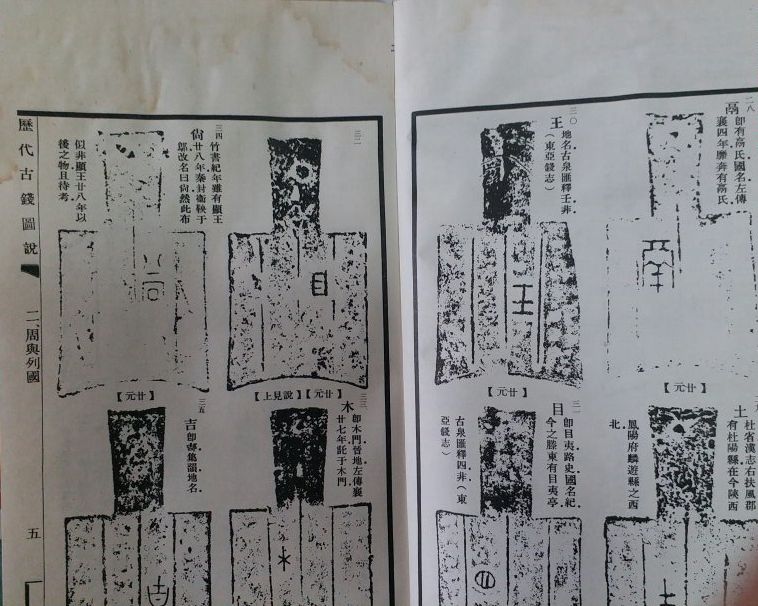 二八
鬲
即有鬲氏國名左傳
襄四年靡奔有鬲氏
【廿元】
土
杜省漢志右扶風郡
有杜陽縣在今陝西
鳳陽府麟遊縣之西
北
三〇
王
地名古泉匯釋壬非
(東亞錢志)
【廿元】
三一
目
即目夷路史國名紀
今之滕東有目夷亭
古泉匯釋四非(東
亞錢志)
三二
【說見上】【廿元】
三三
木
即木門晉地左傳襄
廿七年託于木門
三四
尙
竹書紀年雖有顯王
廿八年秦封衛鞅于
鄔改名曰尙然此布
似非顯王廿八年以
後之物且待考
【廿元】
三五
吉
即 集韻地名
歷代古錢圖說
二、周與列國
五